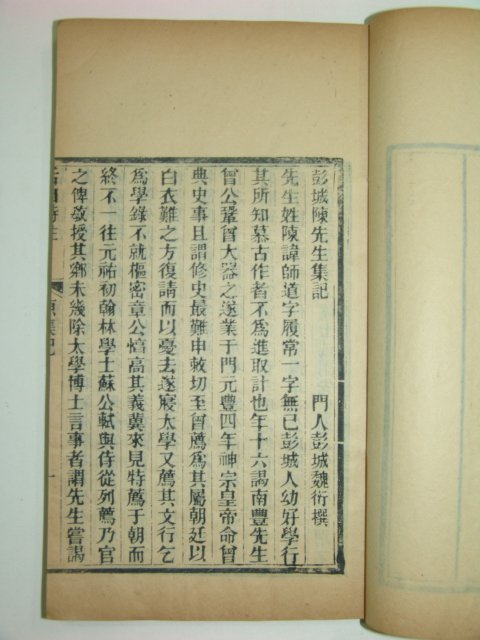 彭城陳先生集記
門人彭城魏衍撰
先生姓陳諱師道字履常一字無已彭城人幼好學行
其所知慕古作者不爲進取計也年十六謁南豐先生
曾公鞏曾大器之遂業于門元豐四年神宗皇帝命曾
典史事且謂修史最難申敕切至曾薦爲其屬朝廷以
白衣難之方復請而以憂去遂寢太學又薦其文行乞
爲學錄不就樞密章公惇高其義冀來見特薦于朝而
終不一往元祐初翰林學士蘇公軾與侍從列薦乃官
之俾敎授其鄉未幾除太學博士言事者謂先生嘗謁
原集記
一